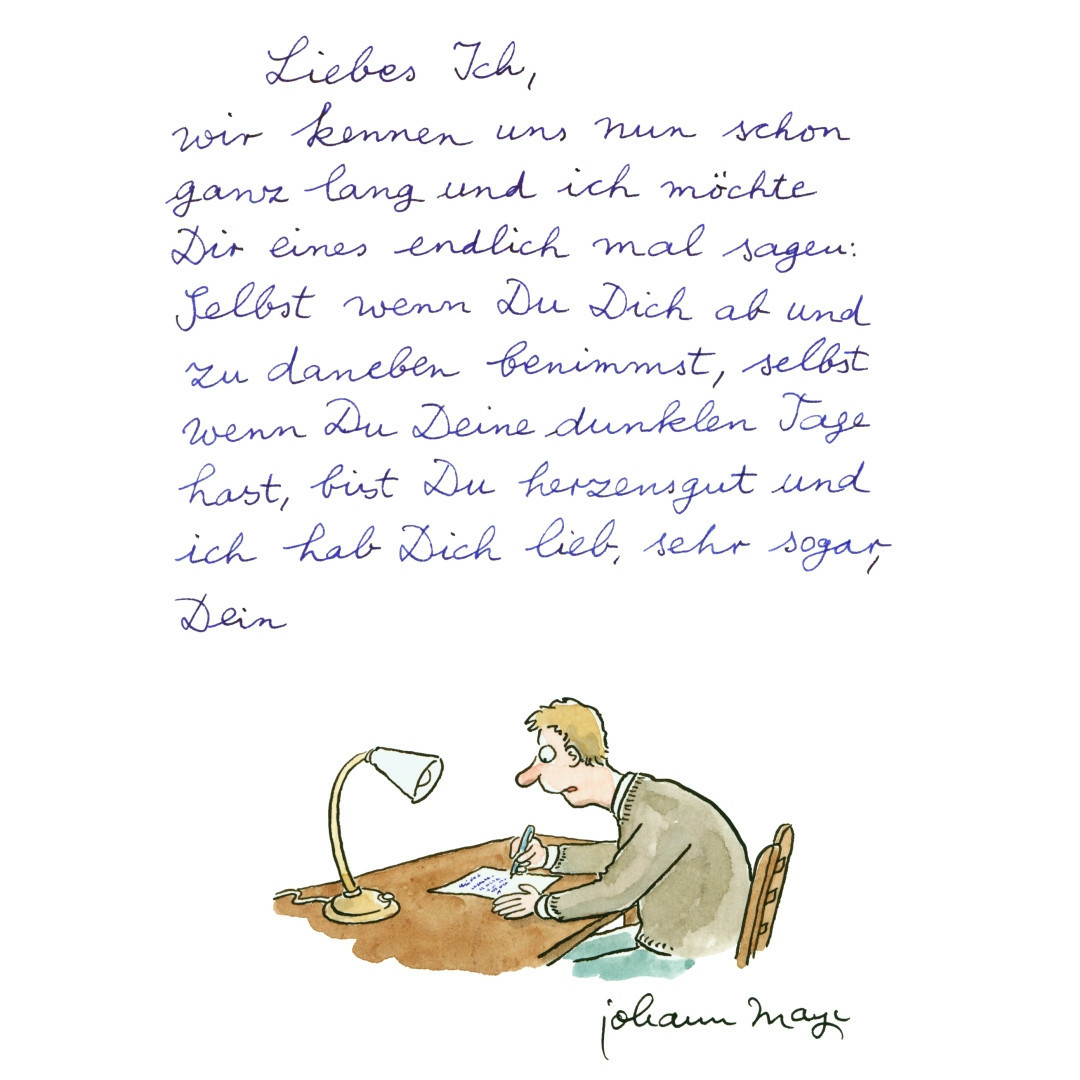 Liebes Ich,
wir kennen uns nun schon
ganz lang und ich möchte
Dir eines endlich mal sagen:
Selbst wenn Du Dich ab und
zu daneben benimmst, selbst
wenn Du Deine dunklen Tage
hast, bist Du herzensgut und
ich hab Dich lieb, sehr sogar,
Dein
johann mayr